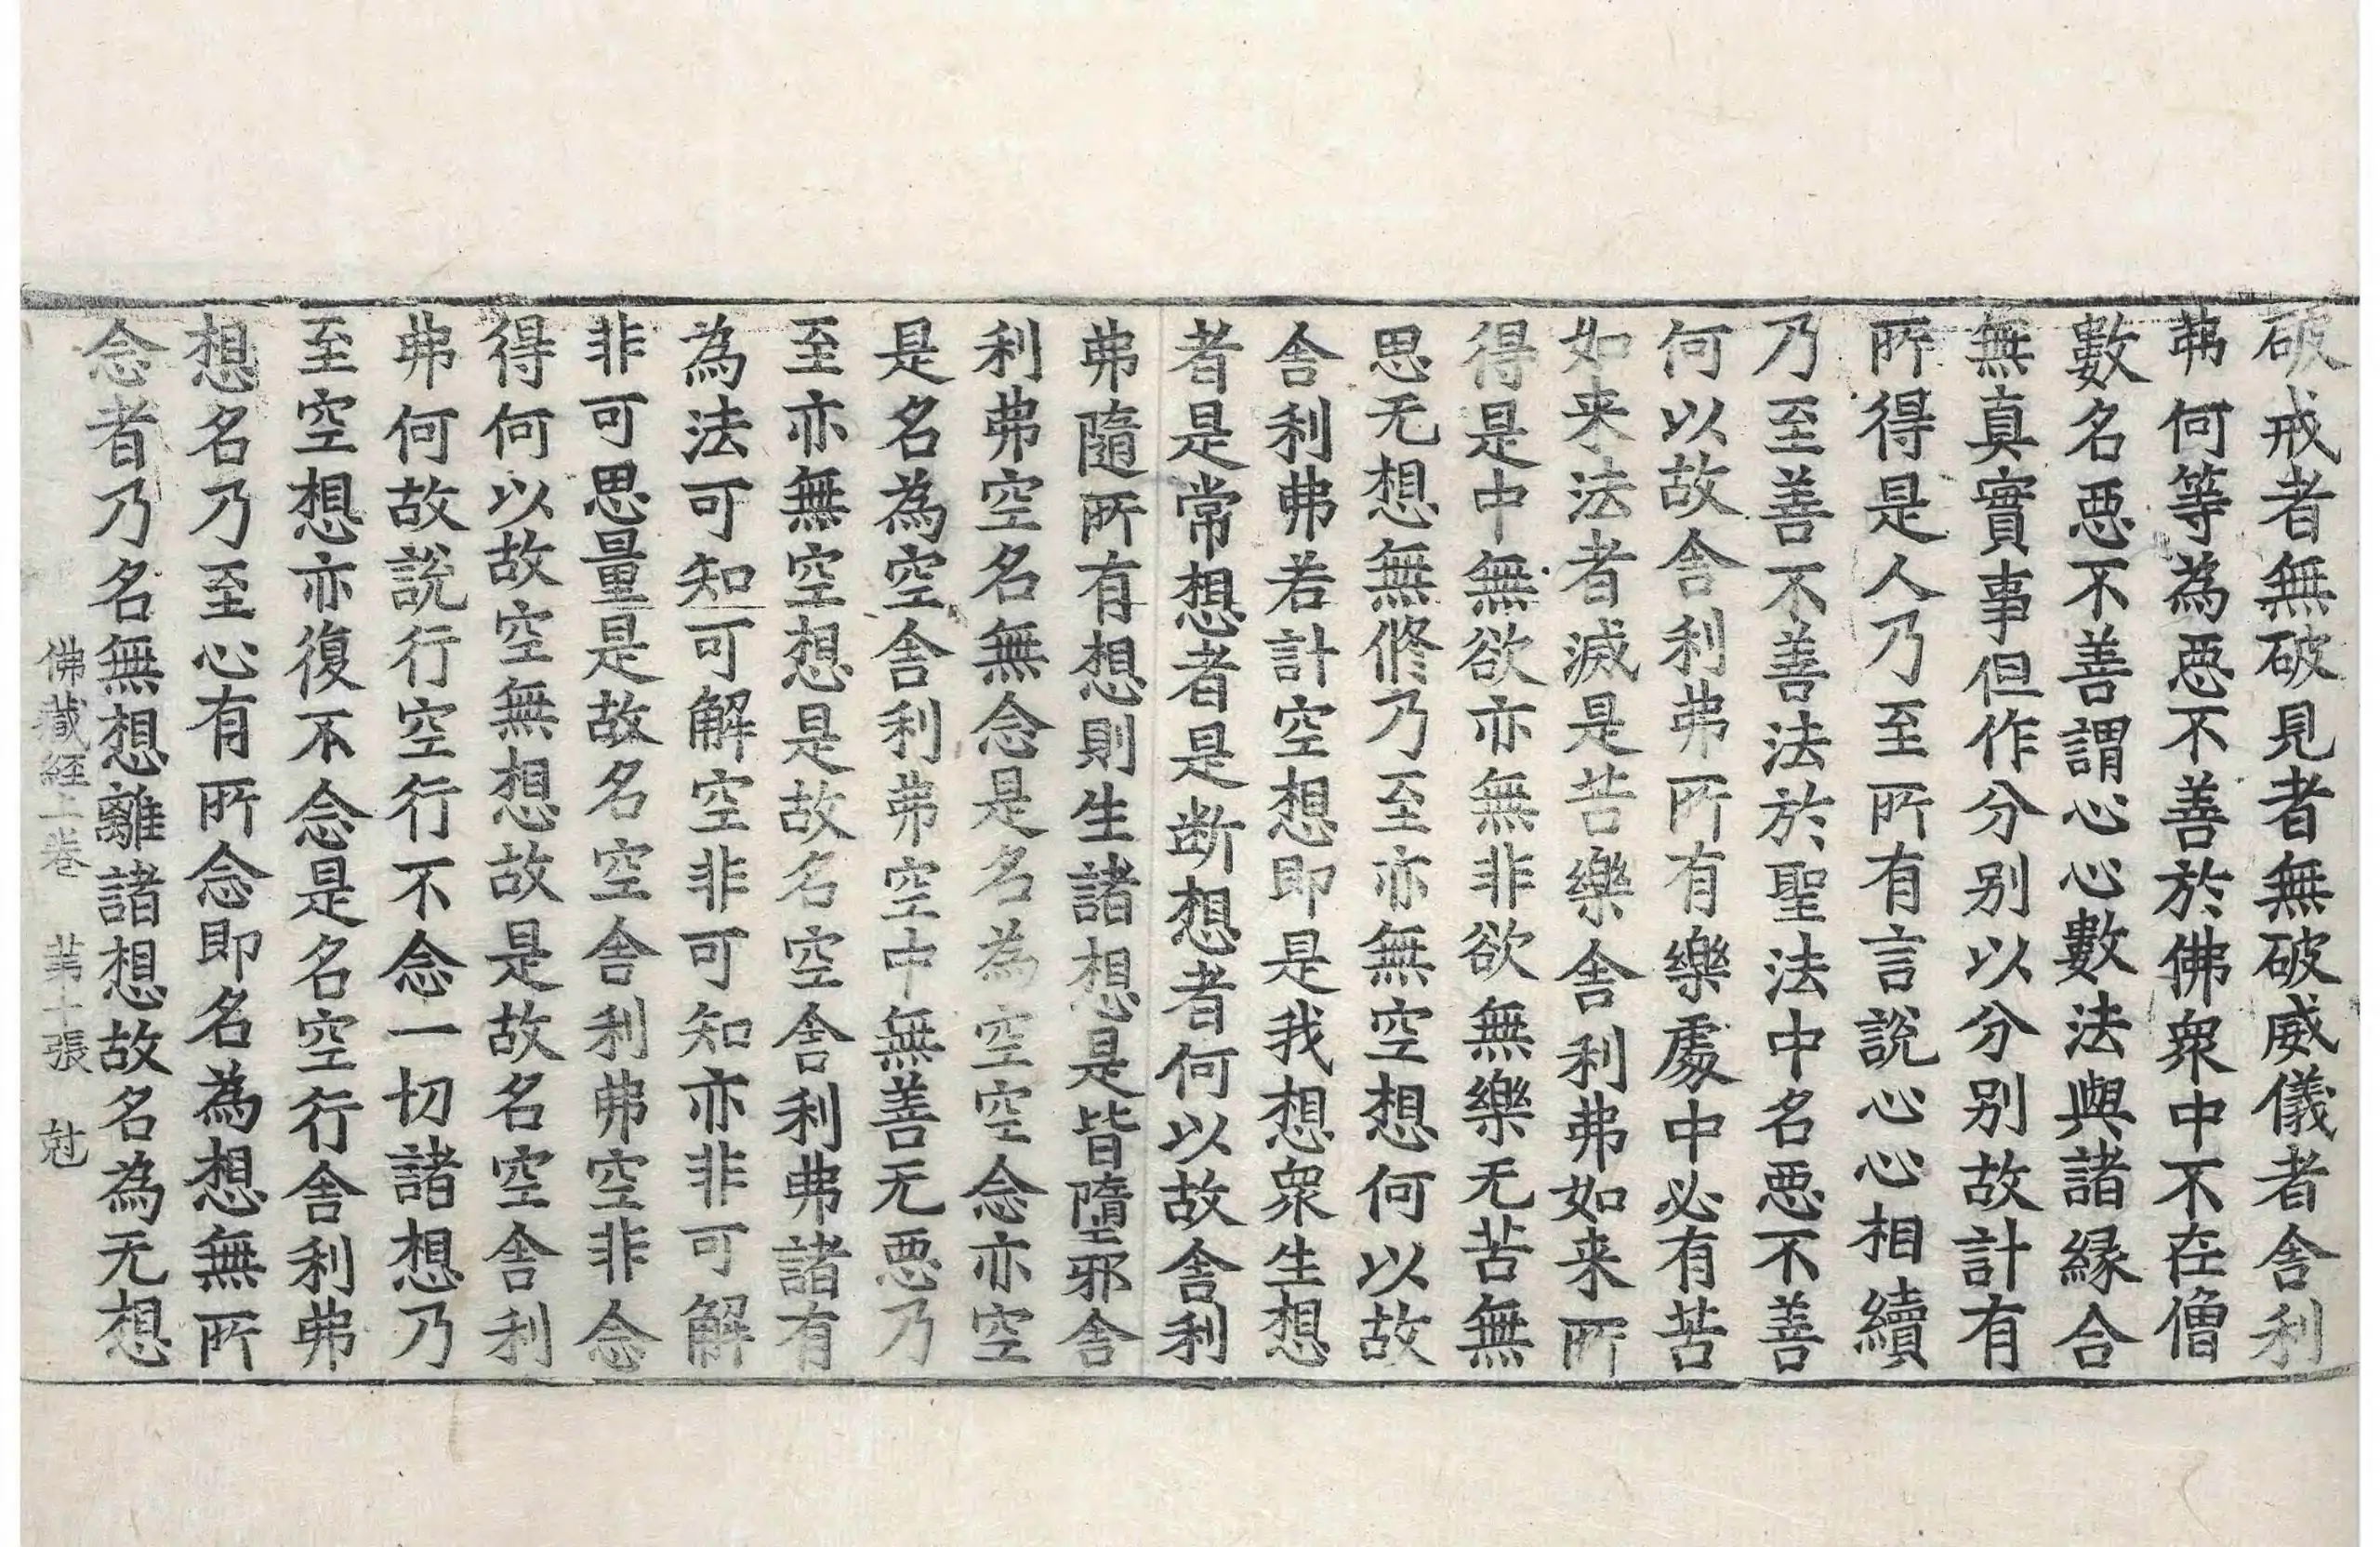 破戒者無破見者無破威儀者舍利
弗何等為惡不善於佛衆中不在僧
數名惡不善謂心心數法與諸緣合
無真實事但作分別以分別故計有
所得是人乃至所有言說心心相續
乃至善不善法於聖法中名惡不善
何以故舍利弗所有樂處中必有苦
如来法者滅是苦樂舍利弗如来所
得是中無欲亦無非欲無樂无苦無
思无想無修乃至亦無空想何以故
舍利弗若計空想即是我想衆生想
者是常想者是断想者何以故舍利
弗隨所有想則生諸想是皆墮邪舍
利弗空名無念是名為空空念亦空
是名為空舍利弗空中無善无惡乃
至亦無空想是故名空舍利弗諸有
為法可知可解空非可知亦非可解
非可思量是故名空舍利弗空非念
得何以故空無想故是故名空舍利
弗何故說行空行不念一切諸想乃
至空想亦復不念是名空行舍利弗
想名乃至心有所念即名為想無所
念者乃名無想離諸想故名為无想
佛藏經上卷 苐十張 尅